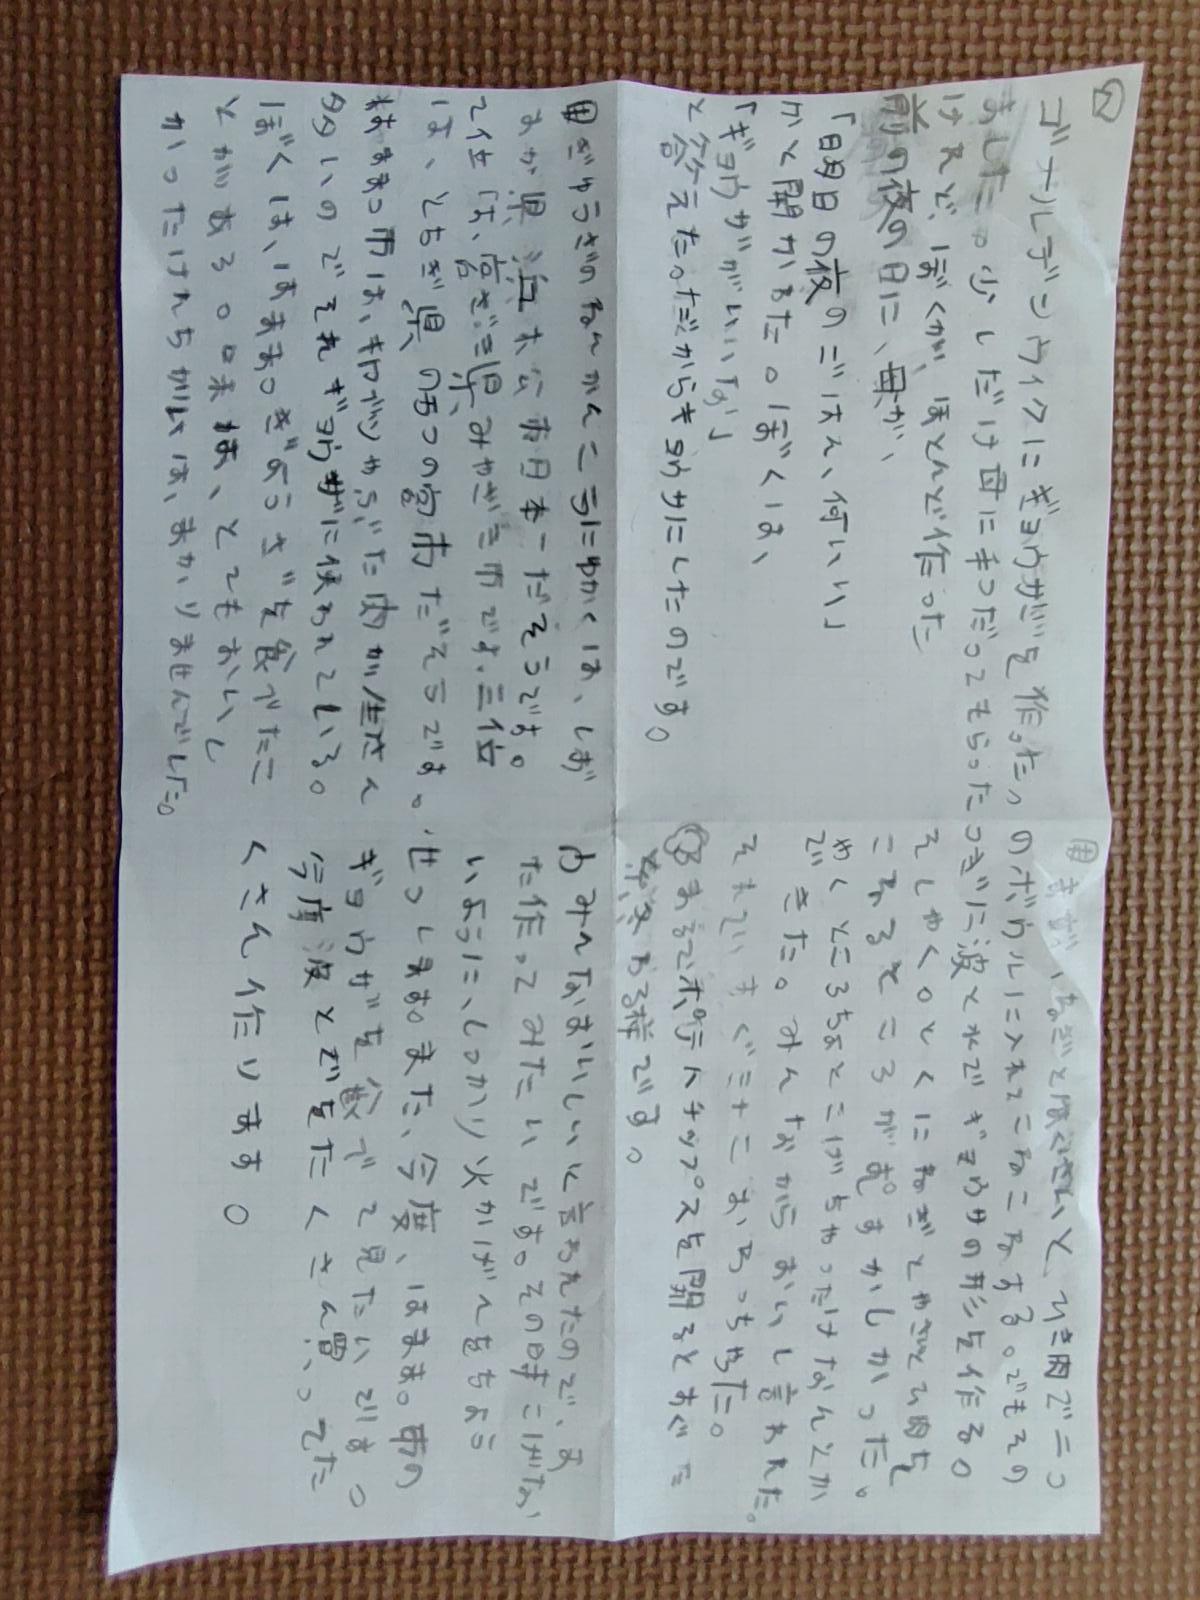 ゴールデンウイクにギョウザを作った。
ました。少しだけ母に手つだってもらった
けれど、ぼくが、ほとんど作った
前の夜の日に、母が、
「明日の夜のごはん、何いい」
かと聞かれた。ぼくは、
「ギョウザがいいな」
と答えた。だからギョウザにしたのです。
キャベツ
のボウルに入れてこねこねする。でもその
つぎに波とれでギョウザの形を作る。
そしゃくのとくにねぎとやさいとひ肉を
こねるところがむずかしかった。
やくところちょとこげちゃったけなんとか
できた。みんなからおいし言われた。
それですぐ
まるでポテトチップスを開るとあけた
様です。
ぎょうざのねんかんこうにゅがくは、しず
おか県浜松市が日本一だそうです。
2位は、宮ざき県みやざき市です。三位
は、とちぎ県のうつの宮市だそうです。
はままつ市は、キャベツやぶた肉が生さん
多いのでそれギョウザに使われている。
ぼくは、はままつぎょうざを食べたこ
とがある。味は、とてもおいし
かったけんちがいは、わかりませんでした。
みんなおいしいと言われたので、ま
た作ってみたいです。その時こげな
いように、しっかり火かげんをちょう
せつします。また、今度、はままつ市の
ギョウザを食べて見たいです。
今度波とでをたくさん買ってた
くさん作ります。